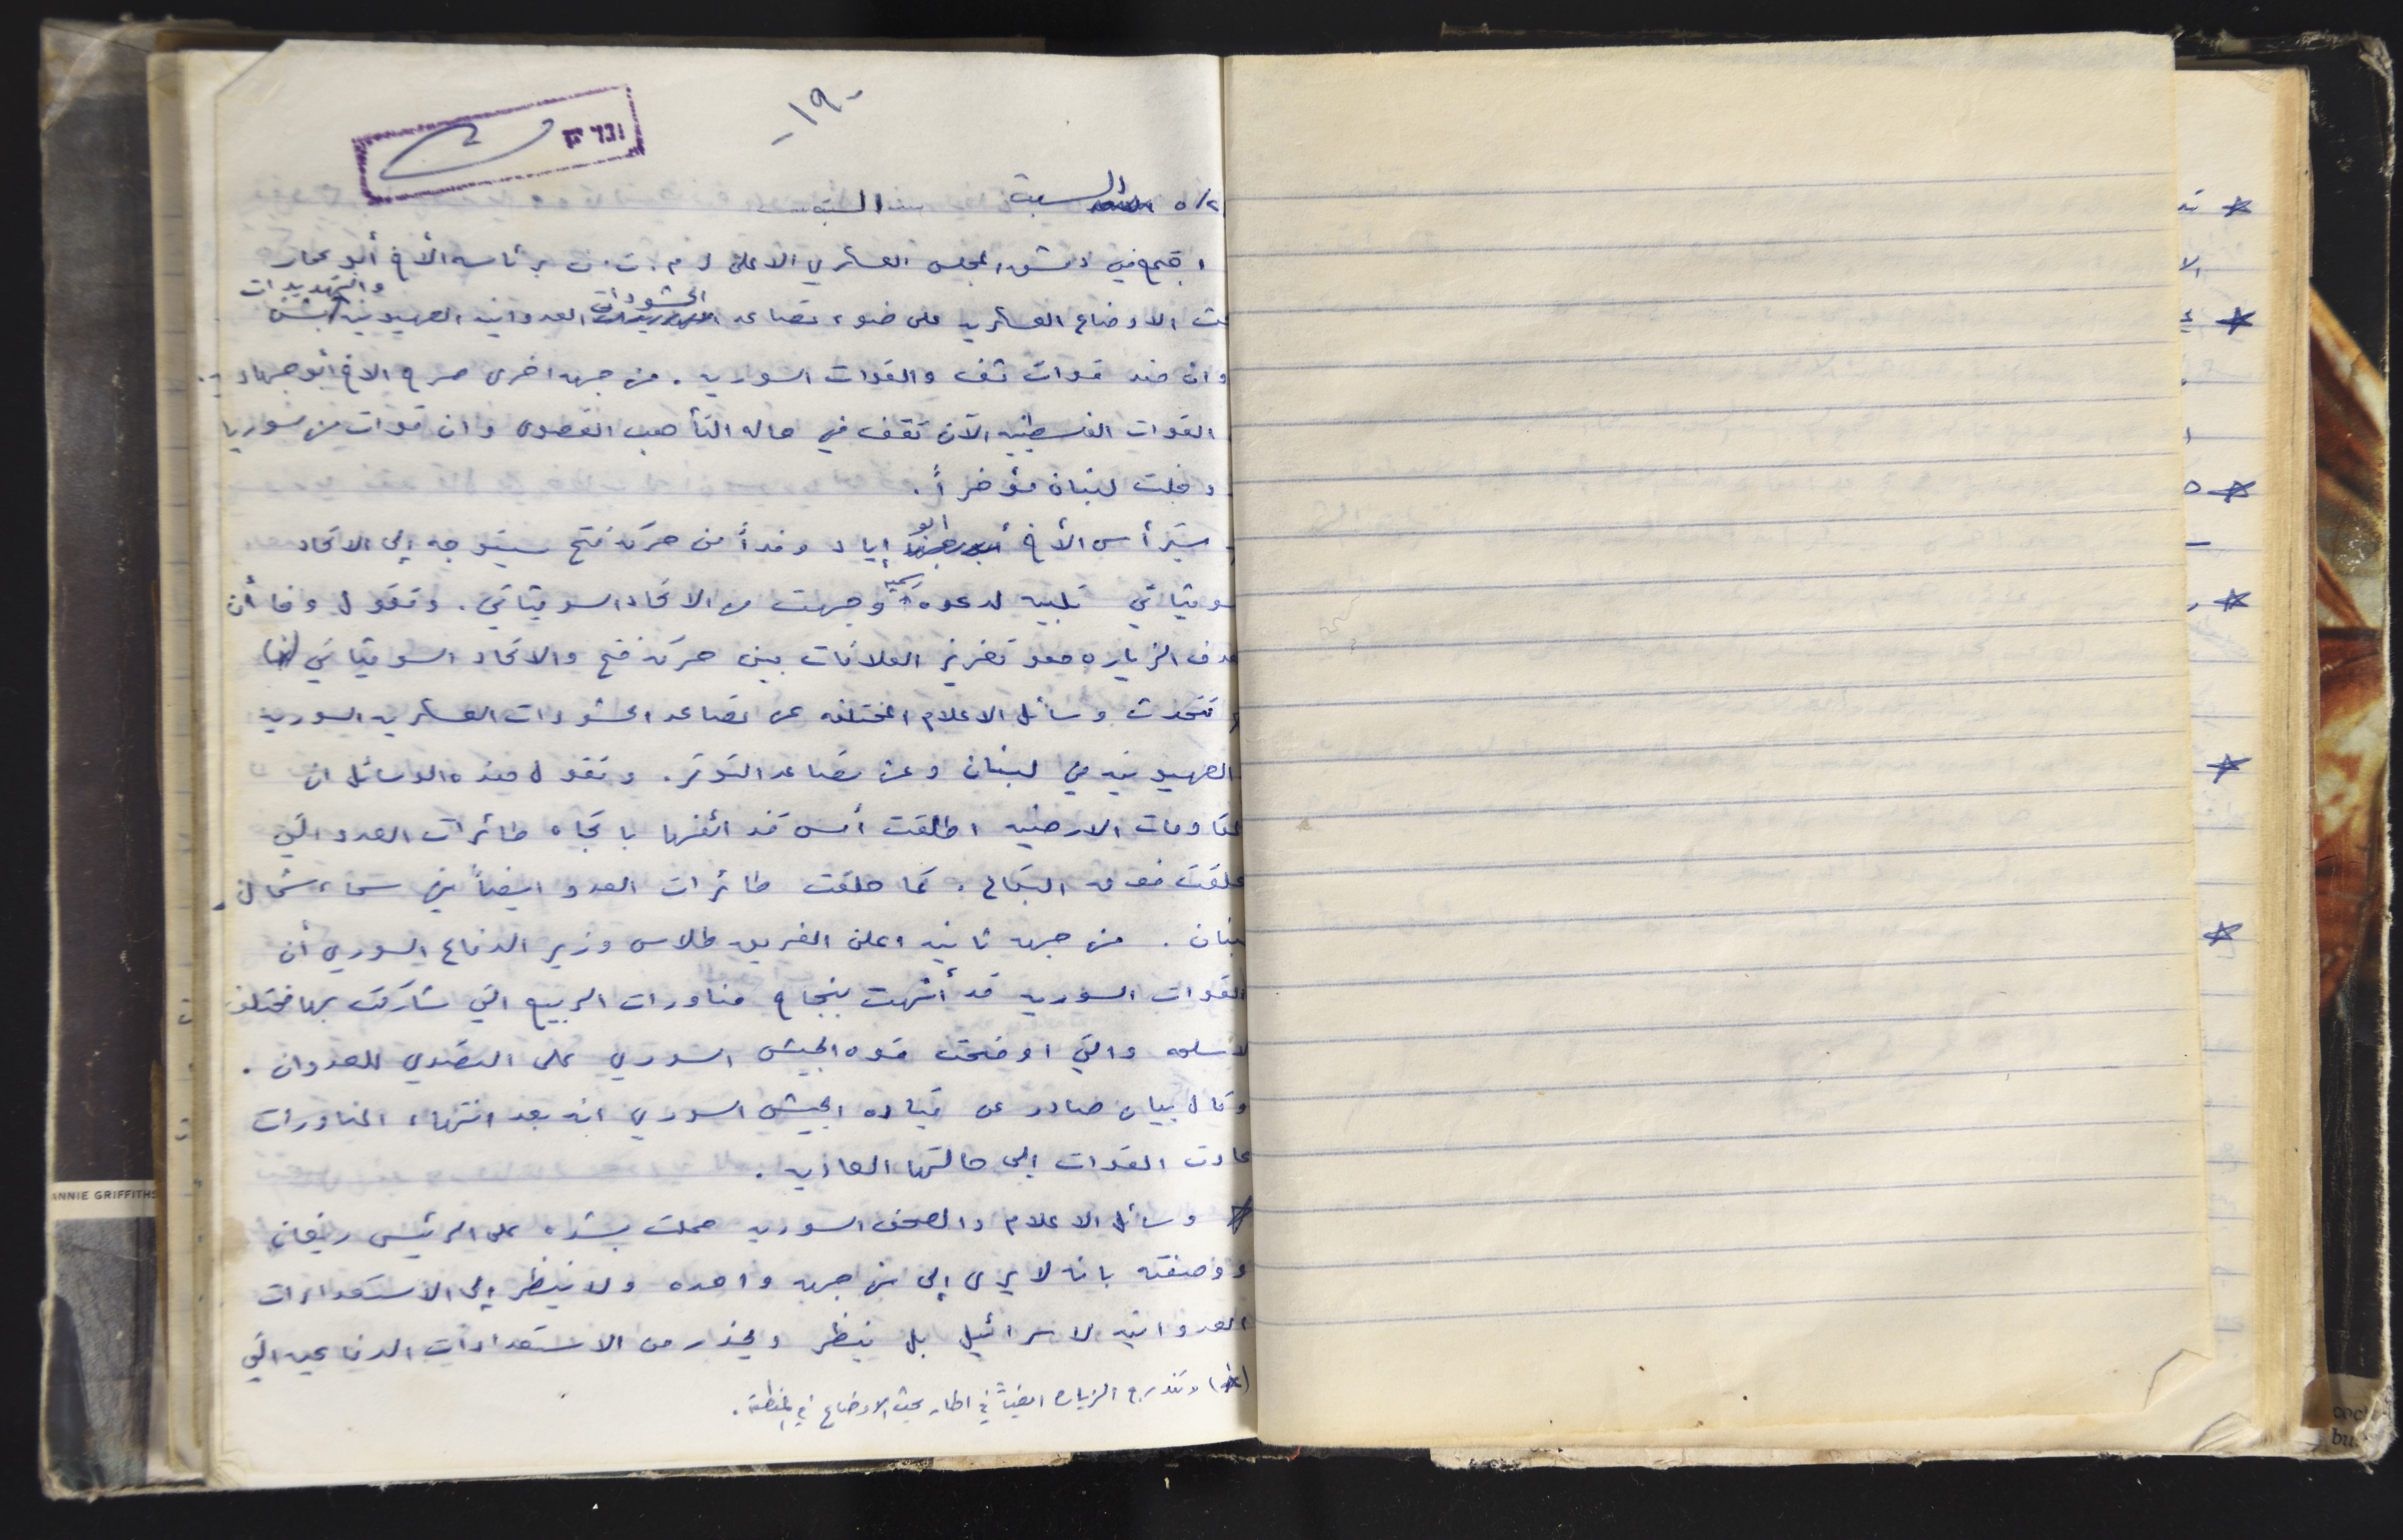 -١٩-
נבדק
٥/٢ السبت السبت
اجتمع في دمشق المجلس العسكري الاعلى ل م.ت.ف برئاسه الأخ أبو عمار
حث الاوضاع العسكريه على ضوء تصاعد الحشودات العدوانيه الصهيونيه والتهديدات بشن
وان ضد قوات تنف والقوات السوريه. من جهه اخرى صرح الاخ أبو جهاد
القوات الفلسطينيه الآن تقف في حاله التأهب القصوى وان قوات من سوريا
دخلت لبنان مؤخراً.
سيترأس الأخ ابو إياد وفداً من حركة فتح سيتوجه إلى الاتحاد
سوفياتي تلبيه لدعوه رسميه وجهت من الاتحاد السوفياتي. وتقول وفا أن
هدف الزياره هو تعزيز العلاقات بين حركة فتح والاتحاد السوفياتي (*)
تتحدث وسائل الاعلام المختلفه عن تصاعد الحشودات العسكريه السوريه
الصهيونيه في لبنان وعن تصاعد التوتر. وتقول هذه الوسائل ان
لمقاومات الارضيه اطلقت أمس قذائفها باتجاه طائرات العدو التي
حلقت فوق البقاع. كما حلقت طائرات العدو ايضاً في سماء شمال
لبنان. من جهه ثانيه اعلن الفريق طلاس وزير الدفاع السوري أن
القوات السوريه قد أنهت بنجاح مناورات الربيع التي شاركت بها مختلف
لاسلحه والتي اوضحت قوه الجيش السوري على التصدي للعدوان.
وقال بيان صادر عن قياده الجيش السوري انه بعد انتهاء المناورات
عادت القوات إلى حالتها العاديه.
* وسائل الاعلام والصحف السوريه حملت بشده على الرئيس ريغان
ووصفته بانه لا يرى إلى من جهه واحده ولا ينظر إلى الاستعدادات
العدوانيه لاسرائيل بل ينظر ويحذر من الاستعدادات الدفاعيه التي
(*) وتندرج الزياره ايضاً في اطار بحث الاوضاع في المنطقة.
ANNIE GRIFFITHS